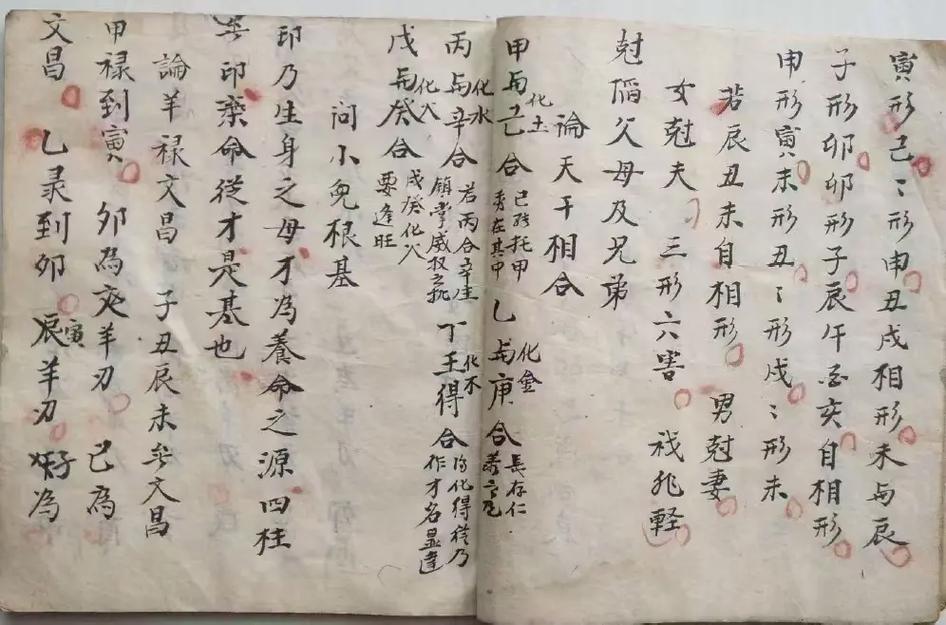 寅形巳〻形申丑戌相形未与辰
子形卯卯形子辰午酉亥自相形
申形寅未形丑〻形戌〻形未
若辰丑未自相形 男尅妻
女尅夫 三形六害 非軽
尅傷父母及兄弟
論天干相合
甲与己合 化土 己能托甲 秀在其中 乙与庚合 化金 長存仁義
丙与辛合 化水 若丙合辛生 鎮掌威权之 丁壬得合 化木 得從乃 作才名显達
戊与癸合 化火 戊癸化火 要逢旺
问小兒根基
印乃生身之母才為養命之源四柱
无印棄命從才是基也
論羊禄文昌 子丑辰未无文昌
甲禄到寅 卯為夾羊刃 巳為
文昌 乙录到卯 寅辰羊刃 為